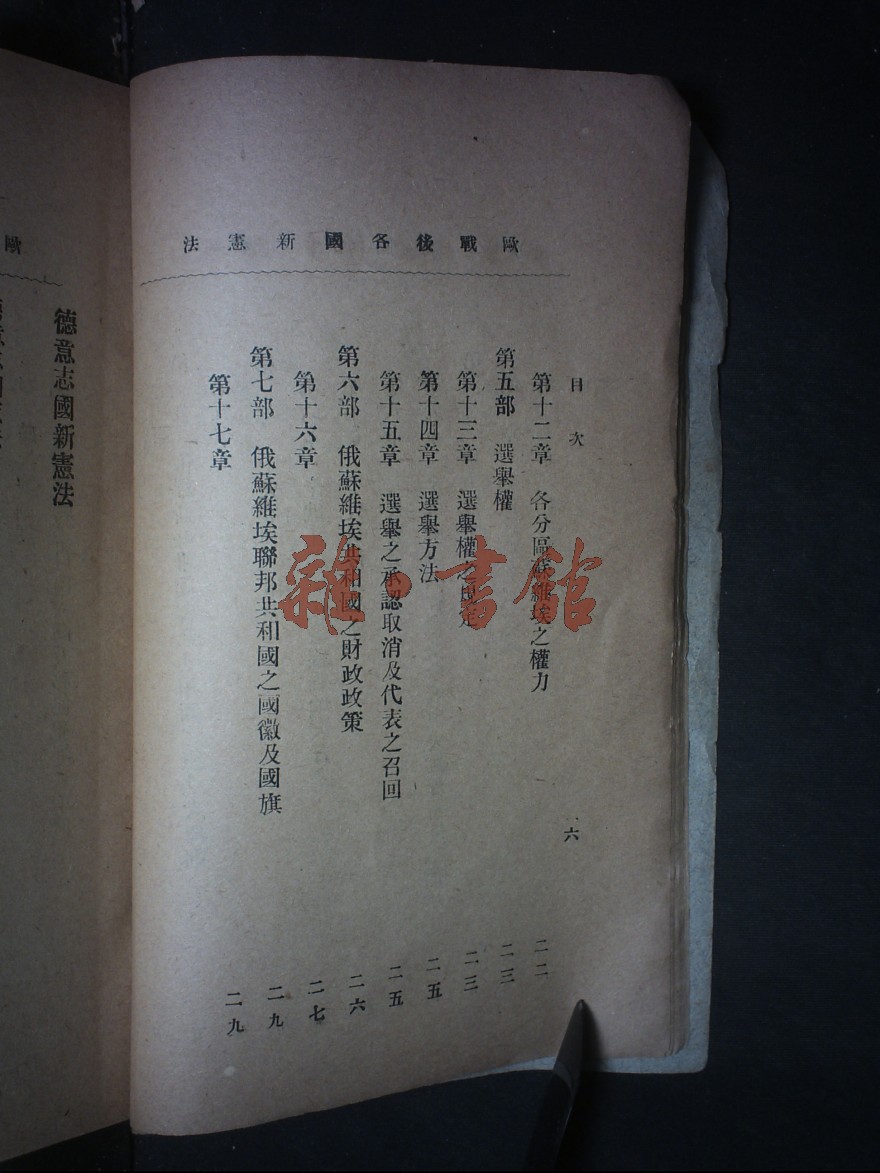 歐戰後各國新憲法
目次
六
第十二章　各分區蘇維埃之權力　二二
第五部　選舉權　二三
第十三章　選舉權之規定　二三
第十四章　選舉方法　二五
第十五章　選舉之承認取消及代表之召回　二五
第六部　俄蘇維埃共和國之財政政策　二六
第十六章　二七
第七部　俄蘇維埃聯邦共和國之國徽及國旗　二九
第十七章　二九
歐
德意志國新憲法
雜書館